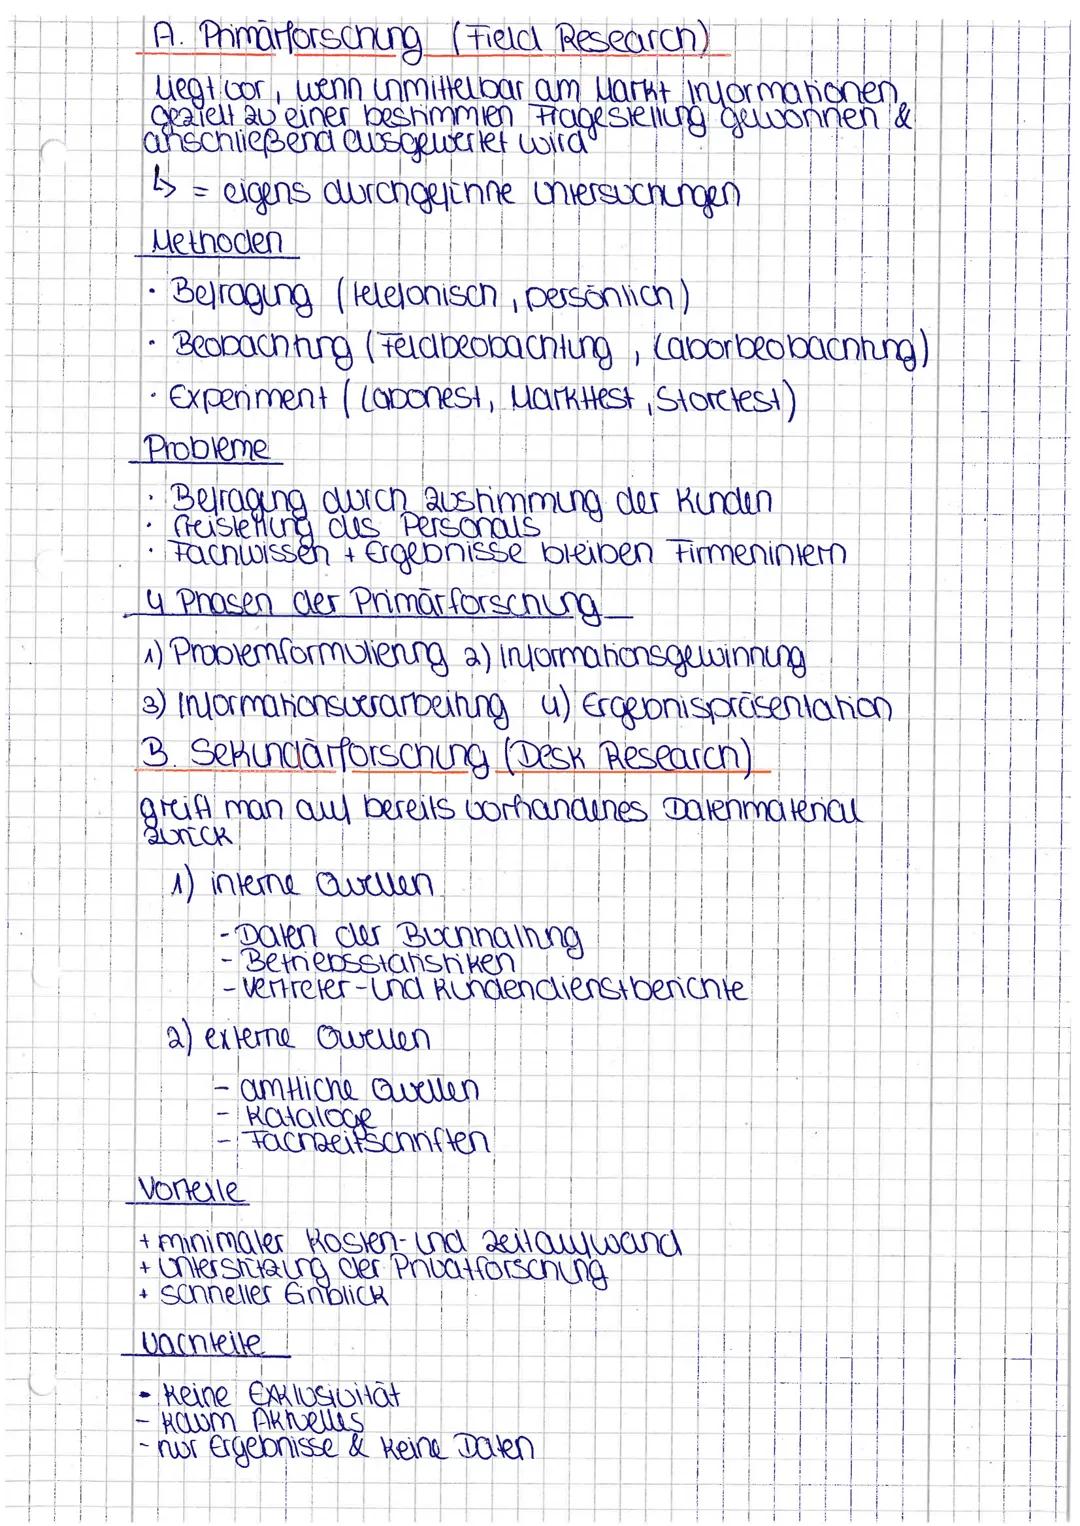 A. Primärforschung (Field Research)
liegt vor, wenn unmittelbar am Markt Informationen
gezielt zu einer bestimmten Fragestellung gewonnen &
anschließend ausgewertet wird
↳ = eigens durchgeführte Untersuchungen
Methoden
· Befragung (telefonisch, persönlich)
· Beobachtung (Feldbeobachtung, Laborbeobachtung)
· Experiment (Labortest, Markttest, Storetest)
Probleme
· Befragung durch Zustimmung der Kunden
· Freistellung des Personals
· Fachwissen + Ergebnisse bleiben Firmenintern
4 Phasen der Primärforschung
1) Problemformulierung 2) Informationsgewinnung
3) Informationsverarbeitung 4) Ergebnispräsentation
B. Sekundärforschung (Desk Research)
greift man auf bereits vorhandenes Datenmaterial
zurück
1) interne Quellen
- Daten der Buchhaltung
- Betriebsstatistiken
- Vertreter- und Kundendienstberichte
2) externe Quellen
- amtliche Quellen
- Kataloge
- Fachzeitschriften
Vorteile
+ minimaler Kosten- und Zeitaufwand
+ Unterstützung der Privatforschung
+ schneller Einblick
Nachteile
- Keine Exklusivität
- Kaum Aktuelles
- nur Ergebnisse & keine Daten